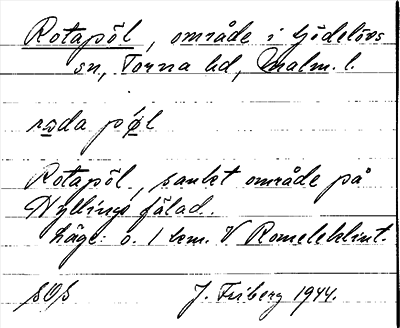 Rotapöl, område i Gödelövs
sn, Torna hd, Malm. l.
roda pǿl
Rotapöl, sankt område på
Kyllings fälad.
Läge: o. 1 km. V Romeleklint.
SOS J. Friberg 1944.